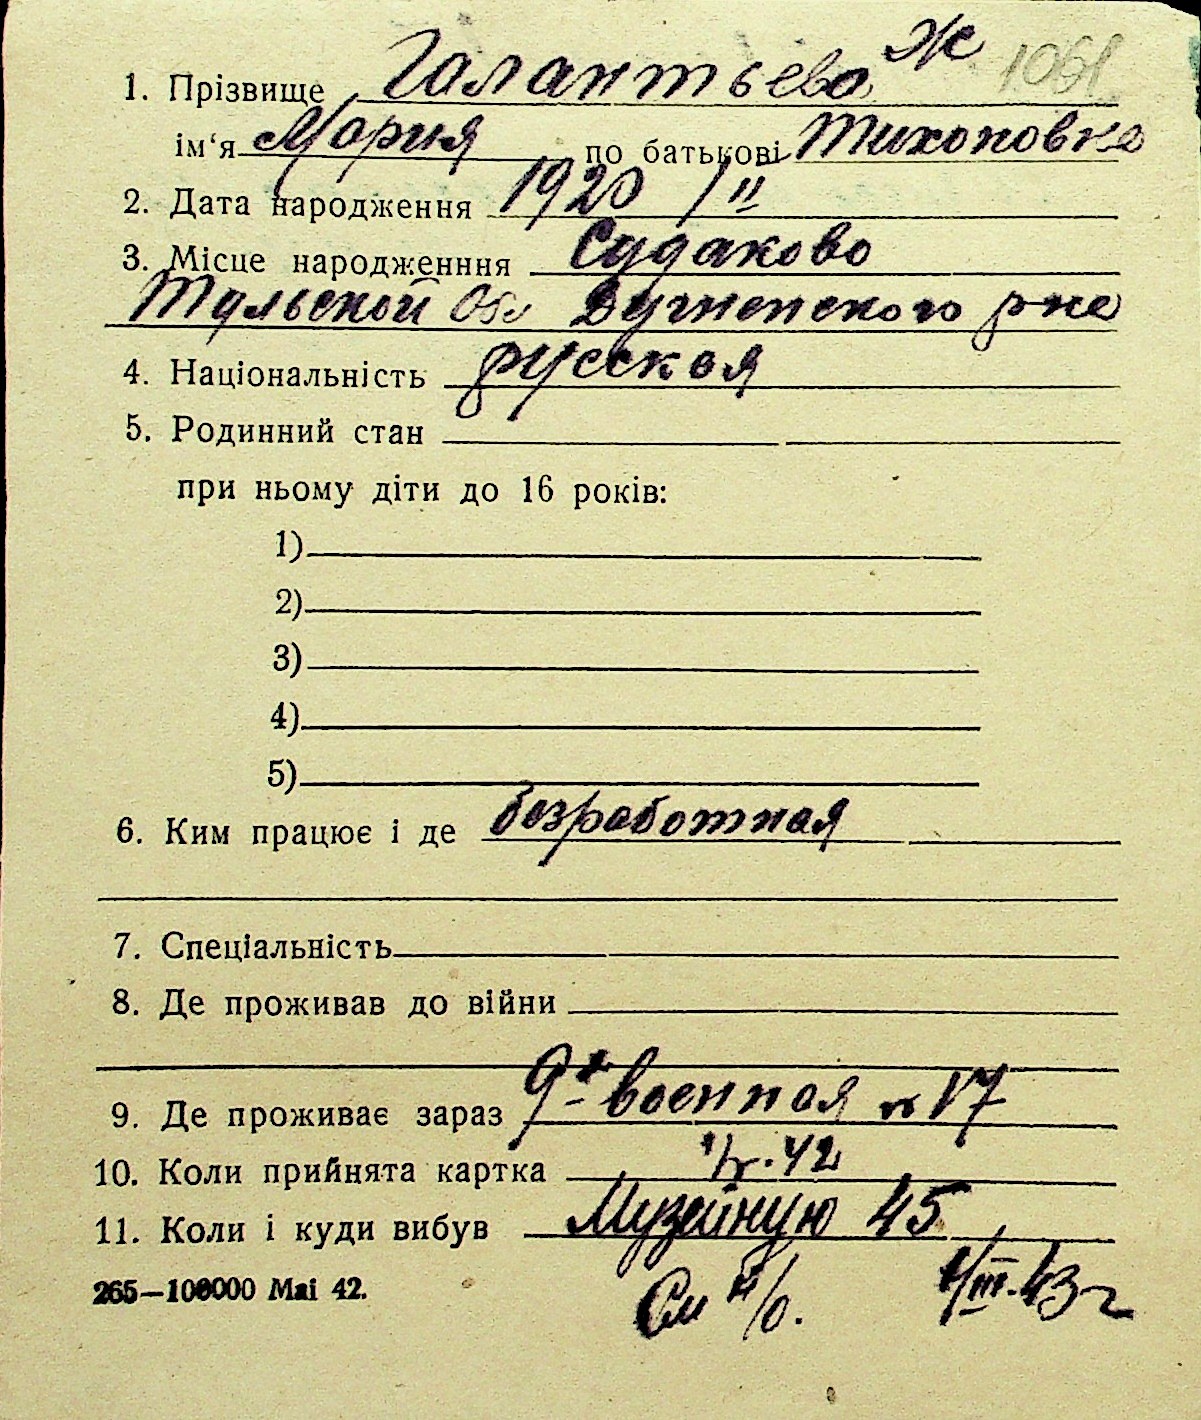 Ж 1061
1. Прізвище Галантьева
ім'я Мария по батькові Тихоновна
2. Дата народження 1920 / II
3. Місце народженння Судаково
Тульской Обл Дугненского р-на
4. Національність русская
5. Родинний стан
при ньому діти до 16 років:
1)
2)
3)
4)
5)
6. Ким працює і де безработная
7. Спеціальність
8. Де проживав до війни
9. Де проживає зараз 9я военная 17
10. Коли прийнята картка 42
11. Коли і куди вибув Музейную 45
265—100000 Mai 42. См н/о. 1/III.43 г